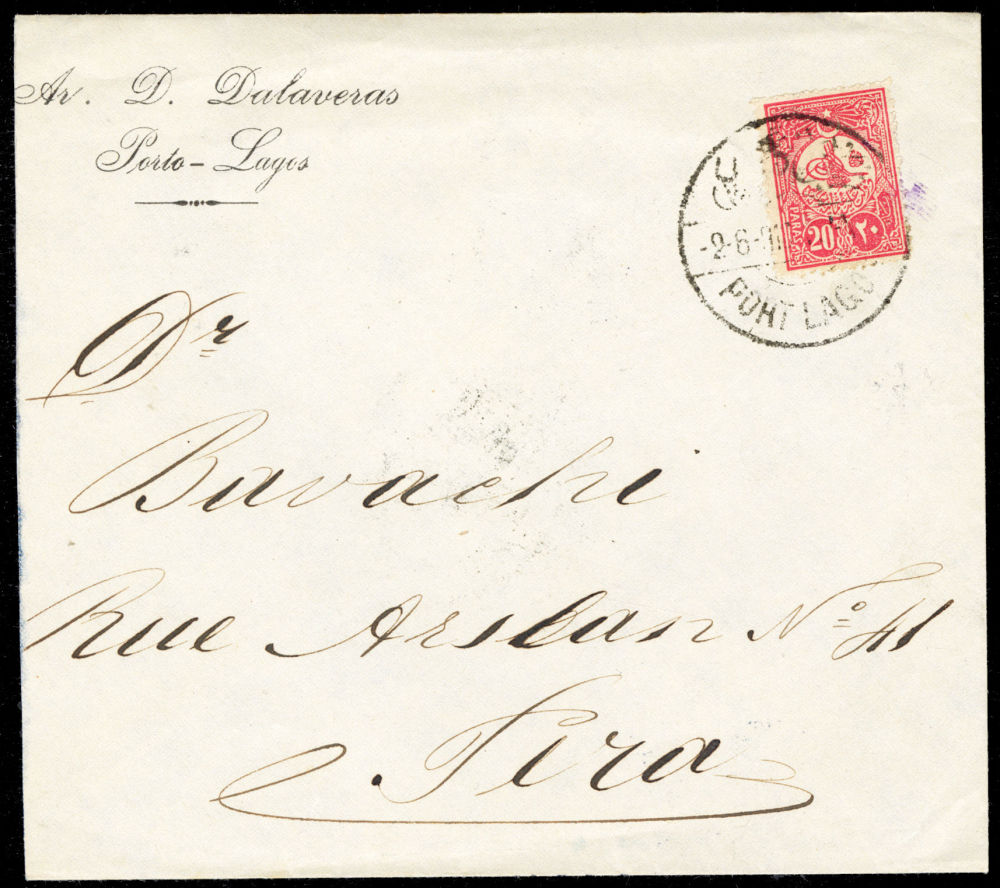 Ar. D. Dalaveras
Porto-Lagos
PARAS 20 ٢٠
-2-6-
PORT LAGOS
Dr
Bavachi
Rue Arslan No 41
Pera